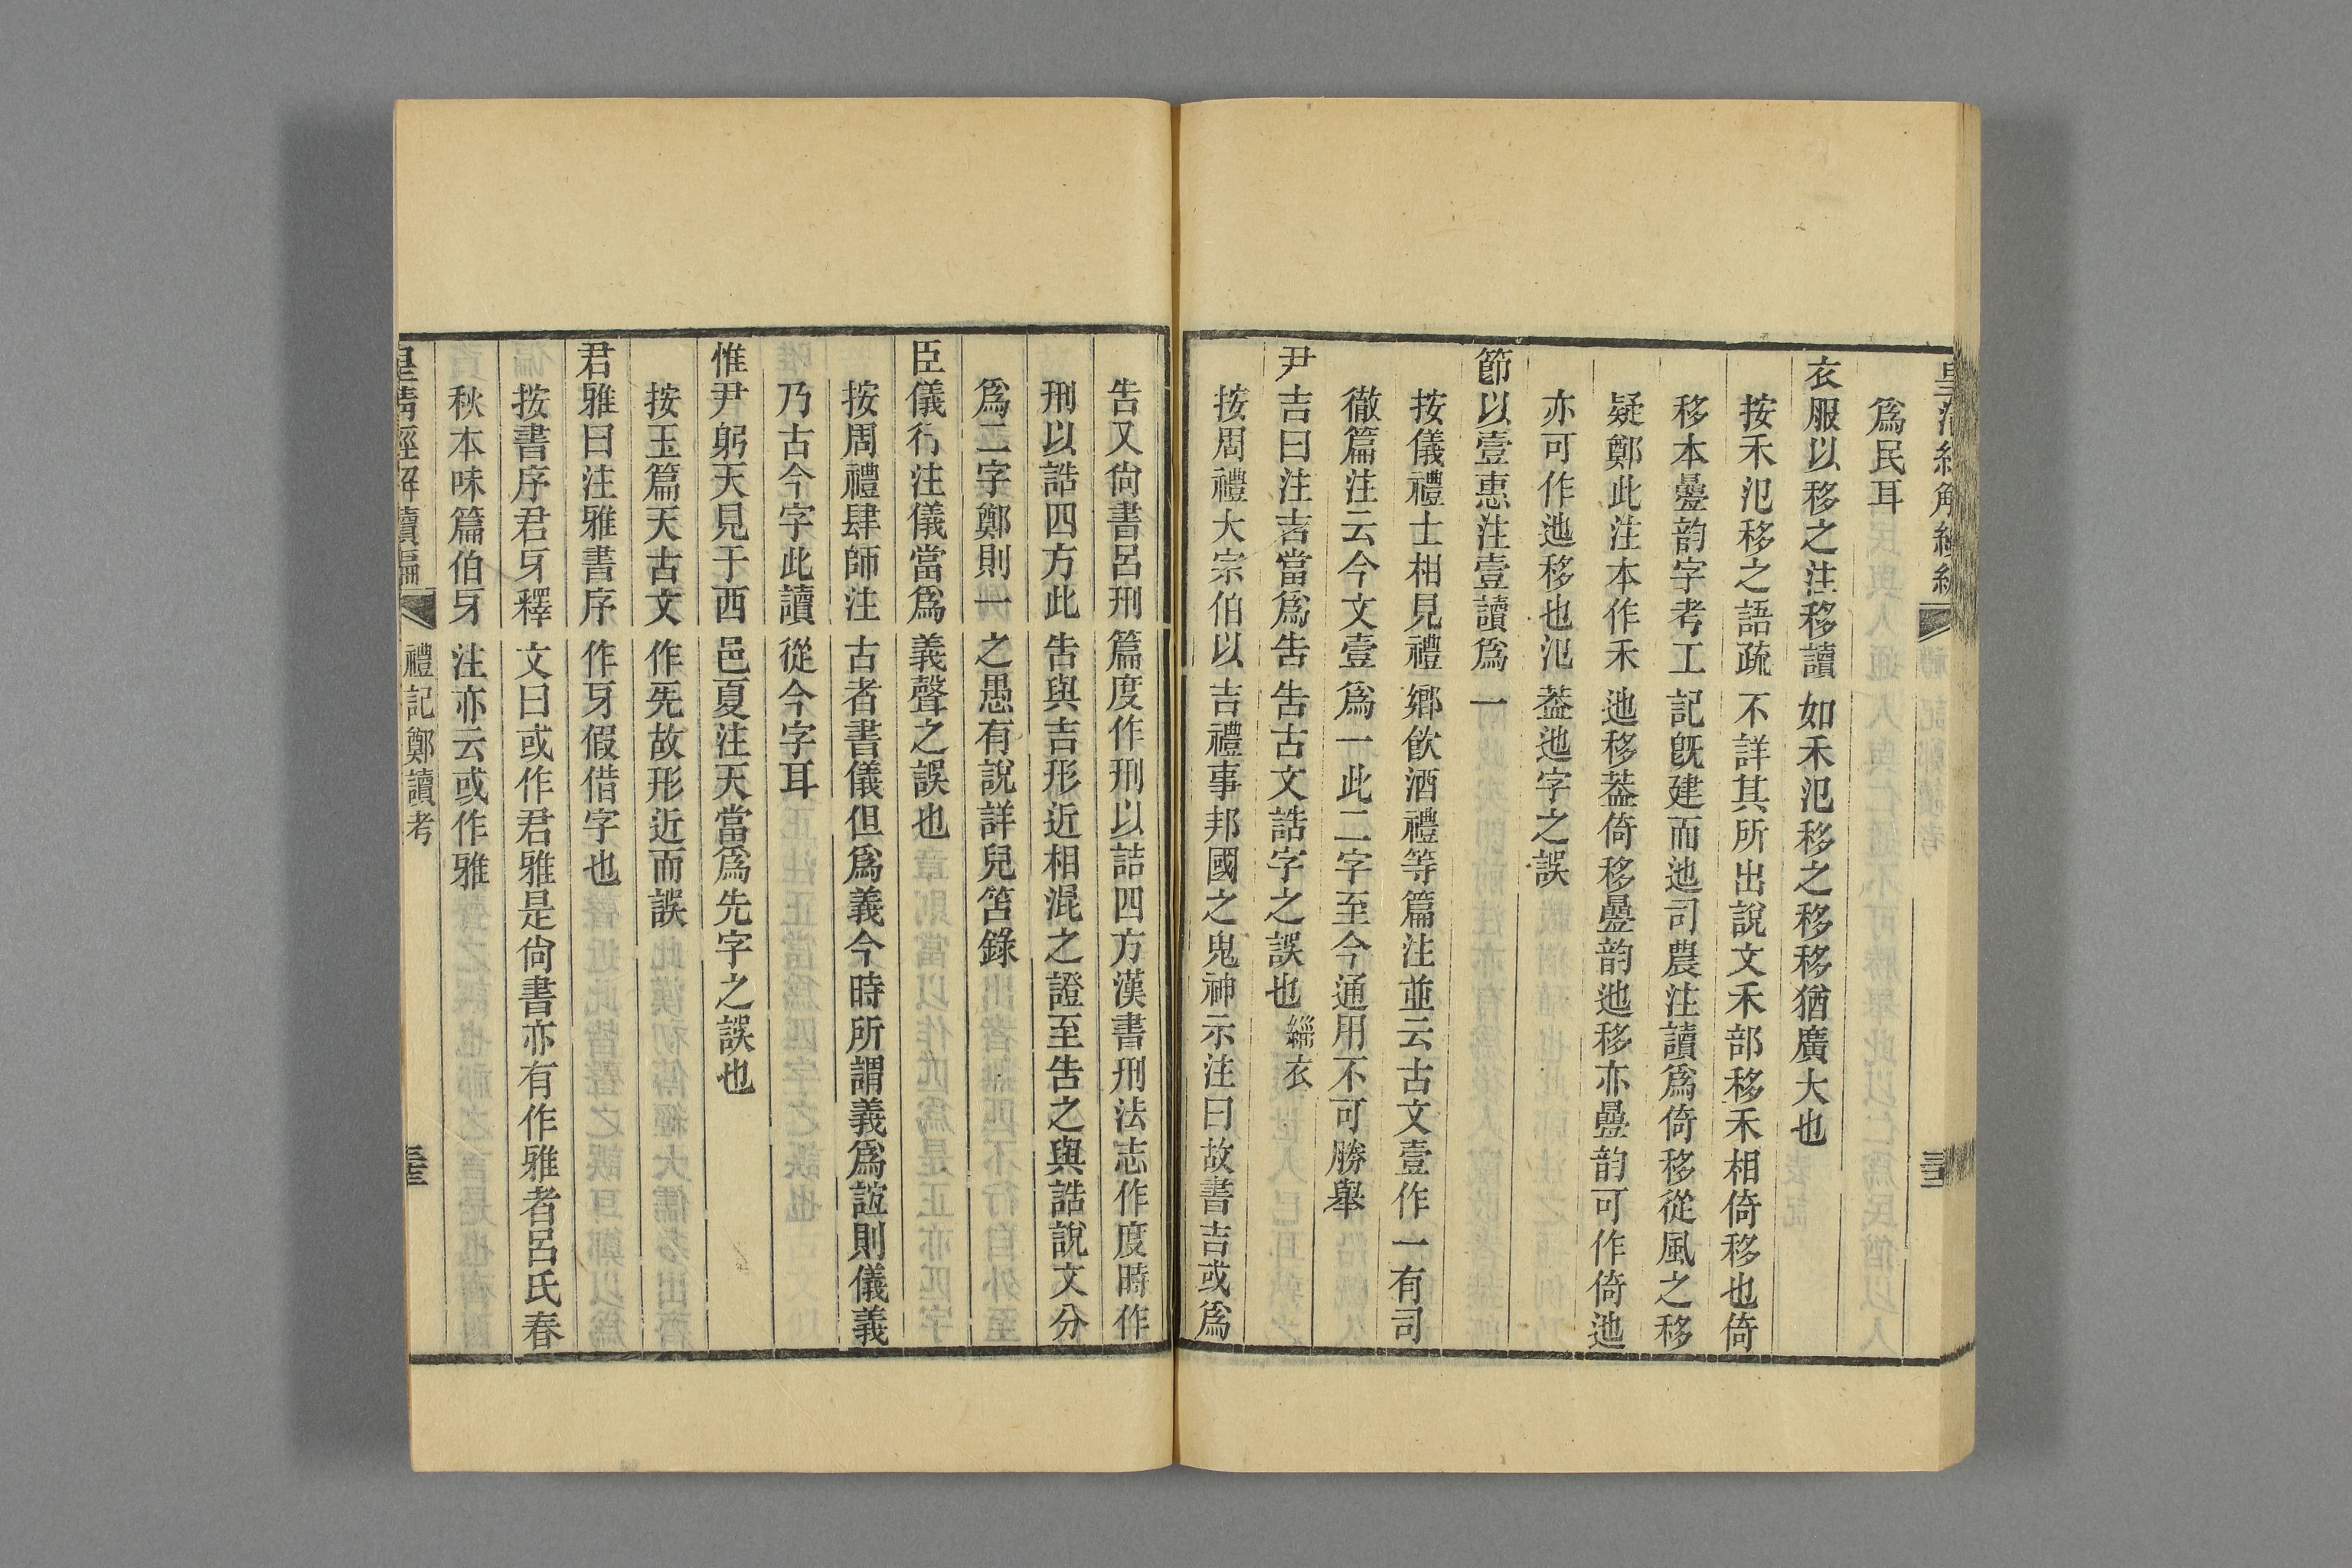 爲民耳
衣服以移之注移讀如禾汜移之移移猶廣大也
按禾汜移之語疏不詳其所出說文禾部移禾相倚移也倚
移本㬪韵字考工記旣建而迆司農注讀爲倚移從風之移
疑鄭此注本作禾迆移葢倚移㬪韵迆移亦㬪韵可作倚迆
亦可作迆移也汜葢迆字之誤
節以壹惠注壹讀爲一
按儀禮士相見禮鄉飲酒禮等篇注並云古文壹作一有司
徹篇注云今文壹爲一此二字至今通用不可勝舉
尹吉曰注吉當爲告告古文誥字之誤也緇衣
按周禮大宗伯以吉禮事邦國之鬼神示注曰故書吉或爲
告又尙書呂刑篇度作刑以詰四方漢書刑法志作度時作
刑以誥四方此告與吉形近相混之證至告之與誥說文分
爲二字鄭則一之愚有說詳兒笘錄
臣儀行注儀當爲義聲之誤也
按周禮肆師注古者書儀但爲義今時所謂義爲誼則儀義
乃古今字此讀從今字耳
惟尹躬天見于西邑夏注天當爲先字之誤也
按玉篇天古文作兂故形近而誤
君雅曰注雅書序作牙假借字也
按書序君牙釋文曰或作君雅是尙書亦有作雅者呂氏春
秋本味篇伯牙注亦云或作雅
皇清經解續編 禮記鄭讀考